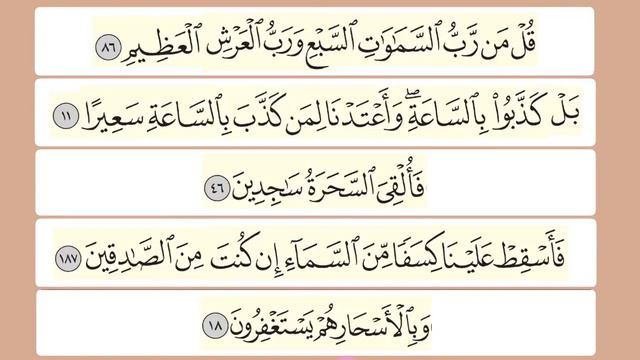 قُلْ مَن رَّبُّ ٱلسَّمَٰوَٰتِ ٱلسَّبْعِ وَرَبُّ ٱلْعَرْشِ ٱلْعَظِيمِ ٨٦
بَلْ كَذَّبُوا۟ بِٱلسَّاعَةِ ۖ وَأَعْتَدْنَا لِمَن كَذَّبَ بِٱلسَّاعَةِ سَعِيرًا ١١
فَأُلْقِىَ ٱلسَّحَرَةُ سَٰجِدِينَ ٤٦
فَأَسْقِطْ عَلَيْنَا كِسَفًا مِّنَ ٱلسَّمَآءِ إِن كُنتَ مِنَ ٱلصَّٰدِقِينَ ١٨٧
وَبِٱلْأَسْحَارِ هُمْ يَسْتَغْفِرُونَ ١٨